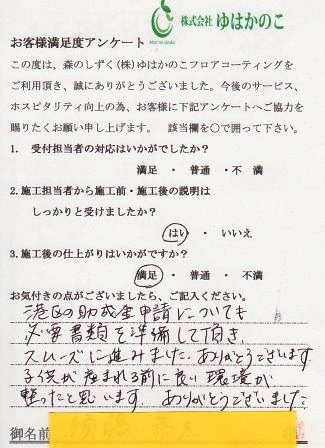 株式会社 ゆはかのこ
お客様満足度アンケート
この度は、森のしずく(株)ゆはかのこフロアコーティングを
ご利用頂き、誠にありがとうございました。今後のサービス、
ホスピタリティ向上の為、お客様に下記アンケートへご協力を
賜りたくお願い申し上げます。 該当欄を○で囲って下さい。
1. 受付担当者の対応はいかがでしたか?
満足 ・ 普通 ・不 満
2.施工担当者から施工前・施工後の説明は
しっかりと受けましたか?
はい ・ いいえ
3.施工後の仕上がりはいかがですか?
満足 ・ 普通 ・ 不満
お気付きの点がございましたら、ご記入ください。
港区の助成金申請についても
必要書類を準備して頂き、
スムーズに進みました。ありがとうございます
子供が産まれる前に良い環境が
整ったと思います。ありがとうございました
御名前